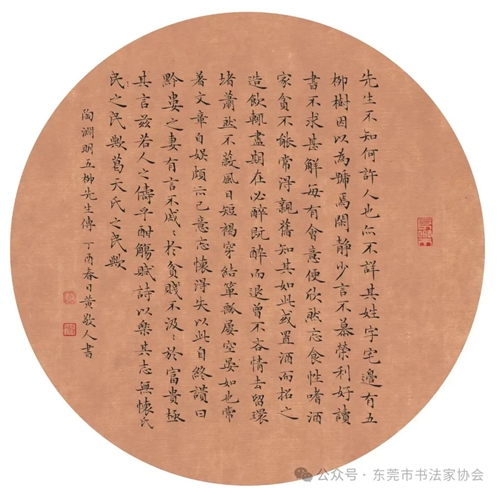 先生不知何許人也亦不詳其姓字宅邊有五
柳樹因以為號焉閑靜少言不慕榮利好讀
書不求甚解每有會意便欣然忘食性嗜酒
家貧不能常得親舊知其如此或置酒而招之
造飲輒盡期在必醉既醉而退曾不吝情去留環
堵蕭然不蔽風日短褐穿結簞瓢屢空晏如也常
著文章自娛頗示己意忘懷得失以此自終讚曰
黔婁之妻有言不戚〻於貧賤不汲〻於富貴極
其言茲若人之儔乎酣觴賦詩以樂其志無懷氏
民之民歟葛天氏之民歟
陶淵明五柳先生傳 丁酉春日黃敬人書
公众号·东莞市书法家协会